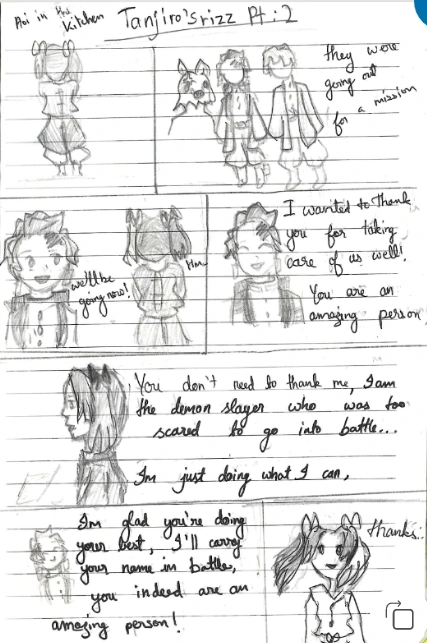 Aoi in the
Kitchen
Tanjiro's rizz Pt:2
they were
going out
for a mission
we'll be
going now!
Hm
I wanted to thank
you for taking
care of us well!
You are an
amazing person
You don't need to thank me, I am
the demon slayer who was too
scared to go into battle...
I'm just doing what I can,
I'm glad you're doing
your best, I'll carry
your name in battle,
you indeed are an
amazing person!
thanks..